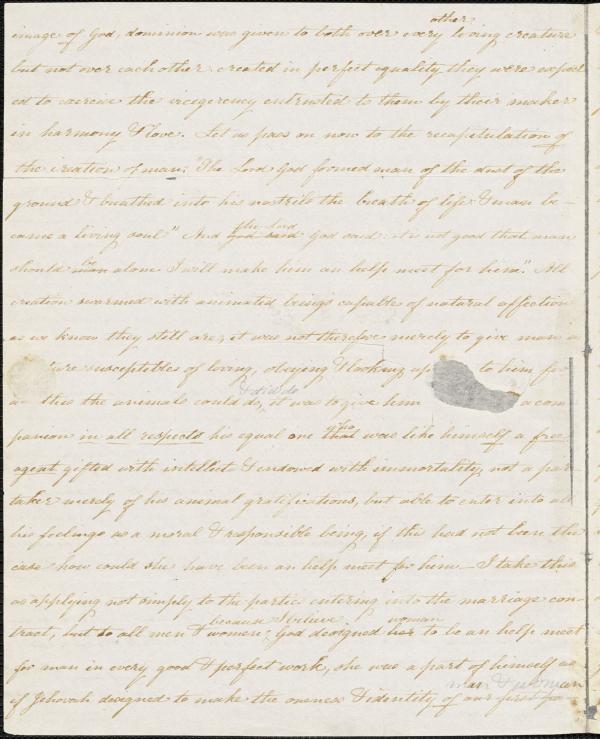 image of God, dominion was given to both over every other living creature
but not over each other. created in perfect equality they were expect
ed to exercise the vicegerency entrusted to them by their maker
in harmony & love. Let us pass on now to the recapitulation of
the creation of man. "The Lord God formed man of the dust of the
ground & breathed into his nostrils the breath of life & man be-
came a living soul" And the Lord god said God said it is not good that man
should man be alone I will make him an help meet for him." All
creation swarmed with animated beings capable of natural affection
as we know they still are, it was not therefore merely to give man a
ture susceptible of loving, obeying & looking up to him for
all this the animals could do, & did do it was to give him a com
panion in all respects his equal one that who was like himself a free
agent gifted with intellect & endowed with immortality, not a par-
taker merely of his animal gratifications, but able to enter into all
his feelings as a moral & responsible being, if this had not been the
case how could she have been an help meet for him— I take this
as applying not simply to the parties entering into the marriage con-
tract, but to all men & women, because I believe God designed her woman to be an help meet
for man in every good & perfect work, she was a part of himself as
if Jehovah designed to make the oneness & identity of man & woman our first pa